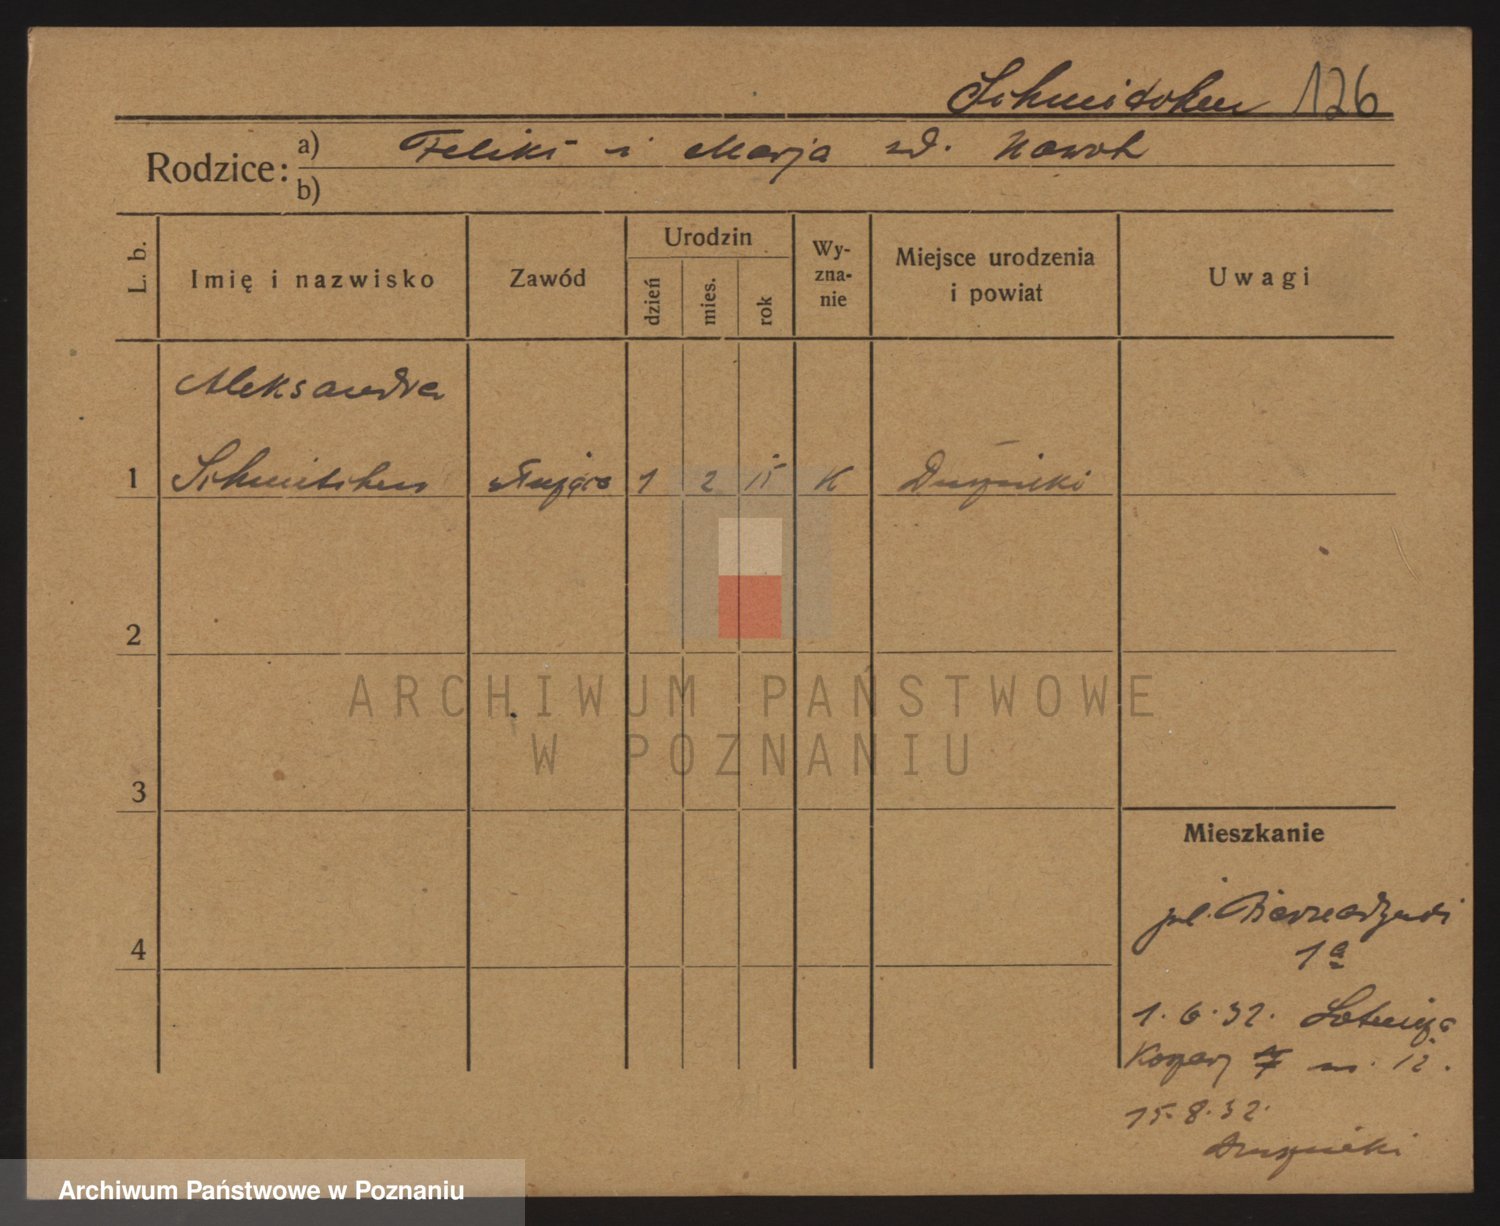 Schmidtchen 126
Rodzice: a) Feliks i Marja zd. Nowak
b)
L. b.
Imię i nazwisko
Zawód
Urodzin
dzień
mies.
rok
Wy-
zna-
nie
Miejsce urodzenia
i powiat
Uwagi
Aleksandra
1 Schmidtchen służąca 1 2 15 K Duszniki
2
3
4
Mieszkanie
pl. Bernardyński
1a
1.6.32.
Koszary 7 m. 12.
15.8.32.
Duszniki
ARCHIWUM PAŃSTWOWE
W POZNANIU
Archiwum Państwowe w Poznaniu